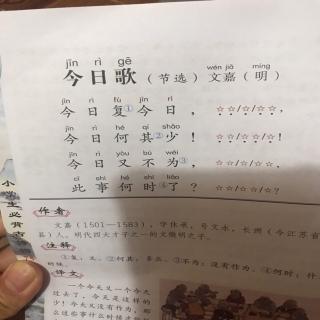 jīn rì gē
今日歌(节选)
wén jiā míng
文嘉(明)
jīn rì fù jīn rì
今日复①今日, ☆☆/☆/☆☆,
jīn rì hé qí shǎo
今日何其②少! ☆☆/☆☆/☆!
jīn rì yòu bù wéi
今日又不为③, ☆☆/☆/☆☆,
cǐ shì hé shí liǎo
此事何时④了? ☆☆/☆☆/☆?
作者
文嘉(1501—1583),字休承,号文水,长洲(今江苏省
县)人。明代四大才子之一的文徵明之子。
注释
①复:又。②何其:多么。③不为:没有作为。④何时:什
时候。
译文
一个今天又一个今天
过去了,今天是这样的
少!今天又没有作为,那
么这些事什么时候才能
小学生必背古